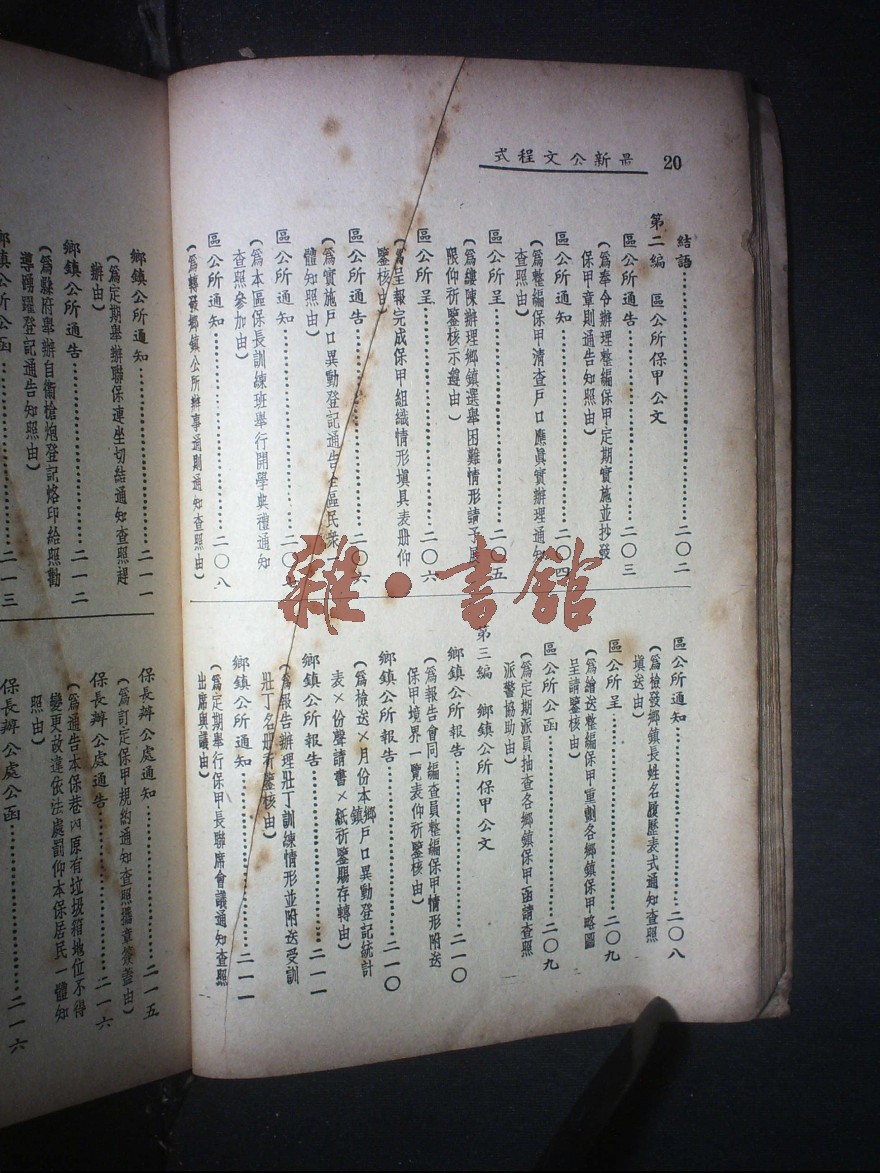 20
最新公文程式
結語……………二〇二
第二編 區公所保甲公文
區公所通告……………二〇三
(爲奉令辦理整編保甲定期實施並抄發
保甲章則通告知照由)
區公所通知……………二〇四
(爲整編保甲清查戶口應眞實辦理通知
查照由)
區公所呈……………二〇五
(爲縷陳辦理鄉鎮選舉困難情形請予展
限仰祈鑒核示遵由)
區公所呈……………二〇六
(爲呈報完成保甲組織情形塡具表册仰
鑒核由)
區公所通告……………二〇六
(爲實施戶口異動登記通告全區民衆一
體知照由)
區公所通知……………二〇七
(爲本區保長訓練班舉行開學典禮通知
查照參加由)
區公所通知……………二〇八
(爲轉發鄉鎮公所辦事通則通知查照由)
區公所通知……………二〇八
(爲檢發鄉鎮長姓名履歷表式通知查照
塡送由)
區公所呈……………二〇九
(爲繪送整編保甲重劃各鄉鎮保甲略圖
呈請鑒核由)
區公所公函……………二〇九
(爲定期派員抽查各鄉鎮保甲函請查照
派警協助由)
第三編 鄉鎮公所保甲公文
鄉鎮公所報告……………二一〇
(爲報告會同編查員整編保甲情形附送
保甲境界一覽表仰祈鑒核由)
鄉鎮公所報告……………二一〇
(爲檢送×月份本鄉鎮戶口異動登記統計
表×份聲請書×紙祈鑒賜存轉由)
鄉鎮公所報告……………二一一
(爲報告辦理壯丁訓練情形並附送受訓
壯丁名册祈鑒核由)
鄉鎮公所通知……………二一一
(爲定期舉行保甲長聯席會議通知查照
出席與議由)
鄉鎮公所通知……………二一一
(爲定期舉辦聯保連坐切結通知查照趕
辦由)
鄉鎮公所通告……………二一二
(爲縣府舉辦自衞槍炮登記烙印給照勸
導踴躍登記通告知照由)
鄉鎮公所公函……………二一三
保長辦公處通知……………二一五
(爲訂定保甲規約通知查照攜章簽蓋由)
保長辦公處通告……………二一六
(爲通告本保巷內原有垃圾箱地位不得
變更故違依法處罰仰本保居民一體知
照由)
保長辦公處公函……………二一六
雜·書館